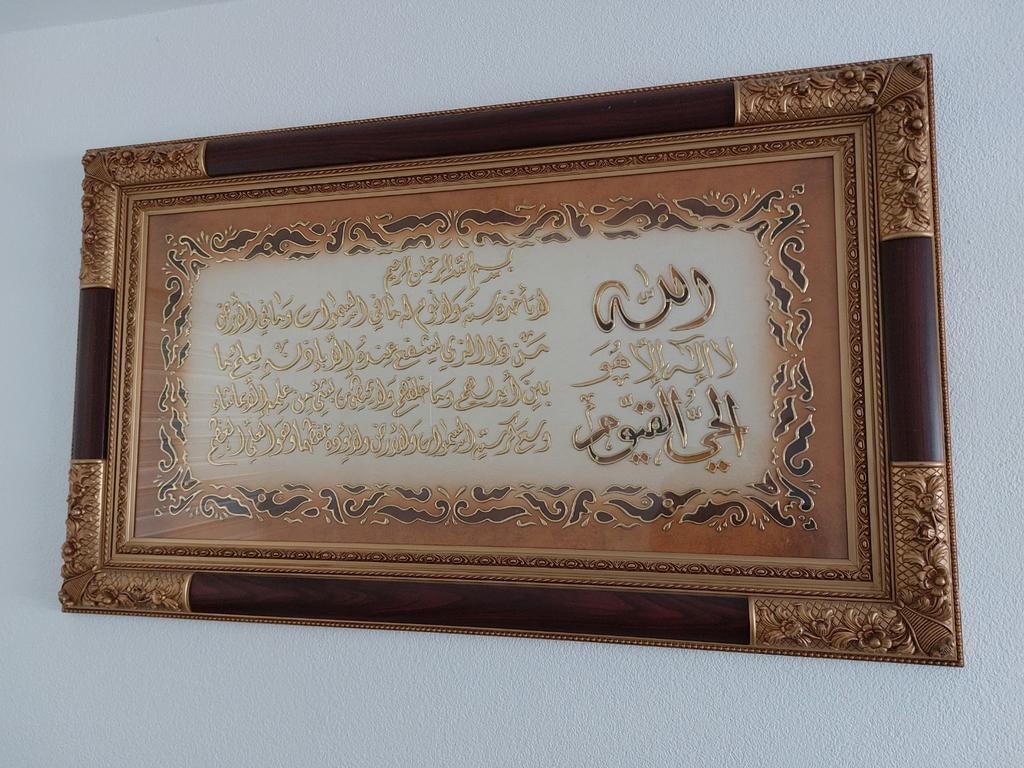 بسم الله الرحمن الرحيم
الله
لا إله إلا هو
الحي القيوم
لا تأخذه سنة ولا نوم له ما في السموات وما في الأرض
من ذا الذي يشفع عنده إلا بإذنه يعلم ما
بين أيديهم وما خلفهم ولا يحيطون بشيء من علمه إلا بما شاء
وسع كرسيه السموات والأرض ولا يؤده حفظهما وهو العلي العظيم